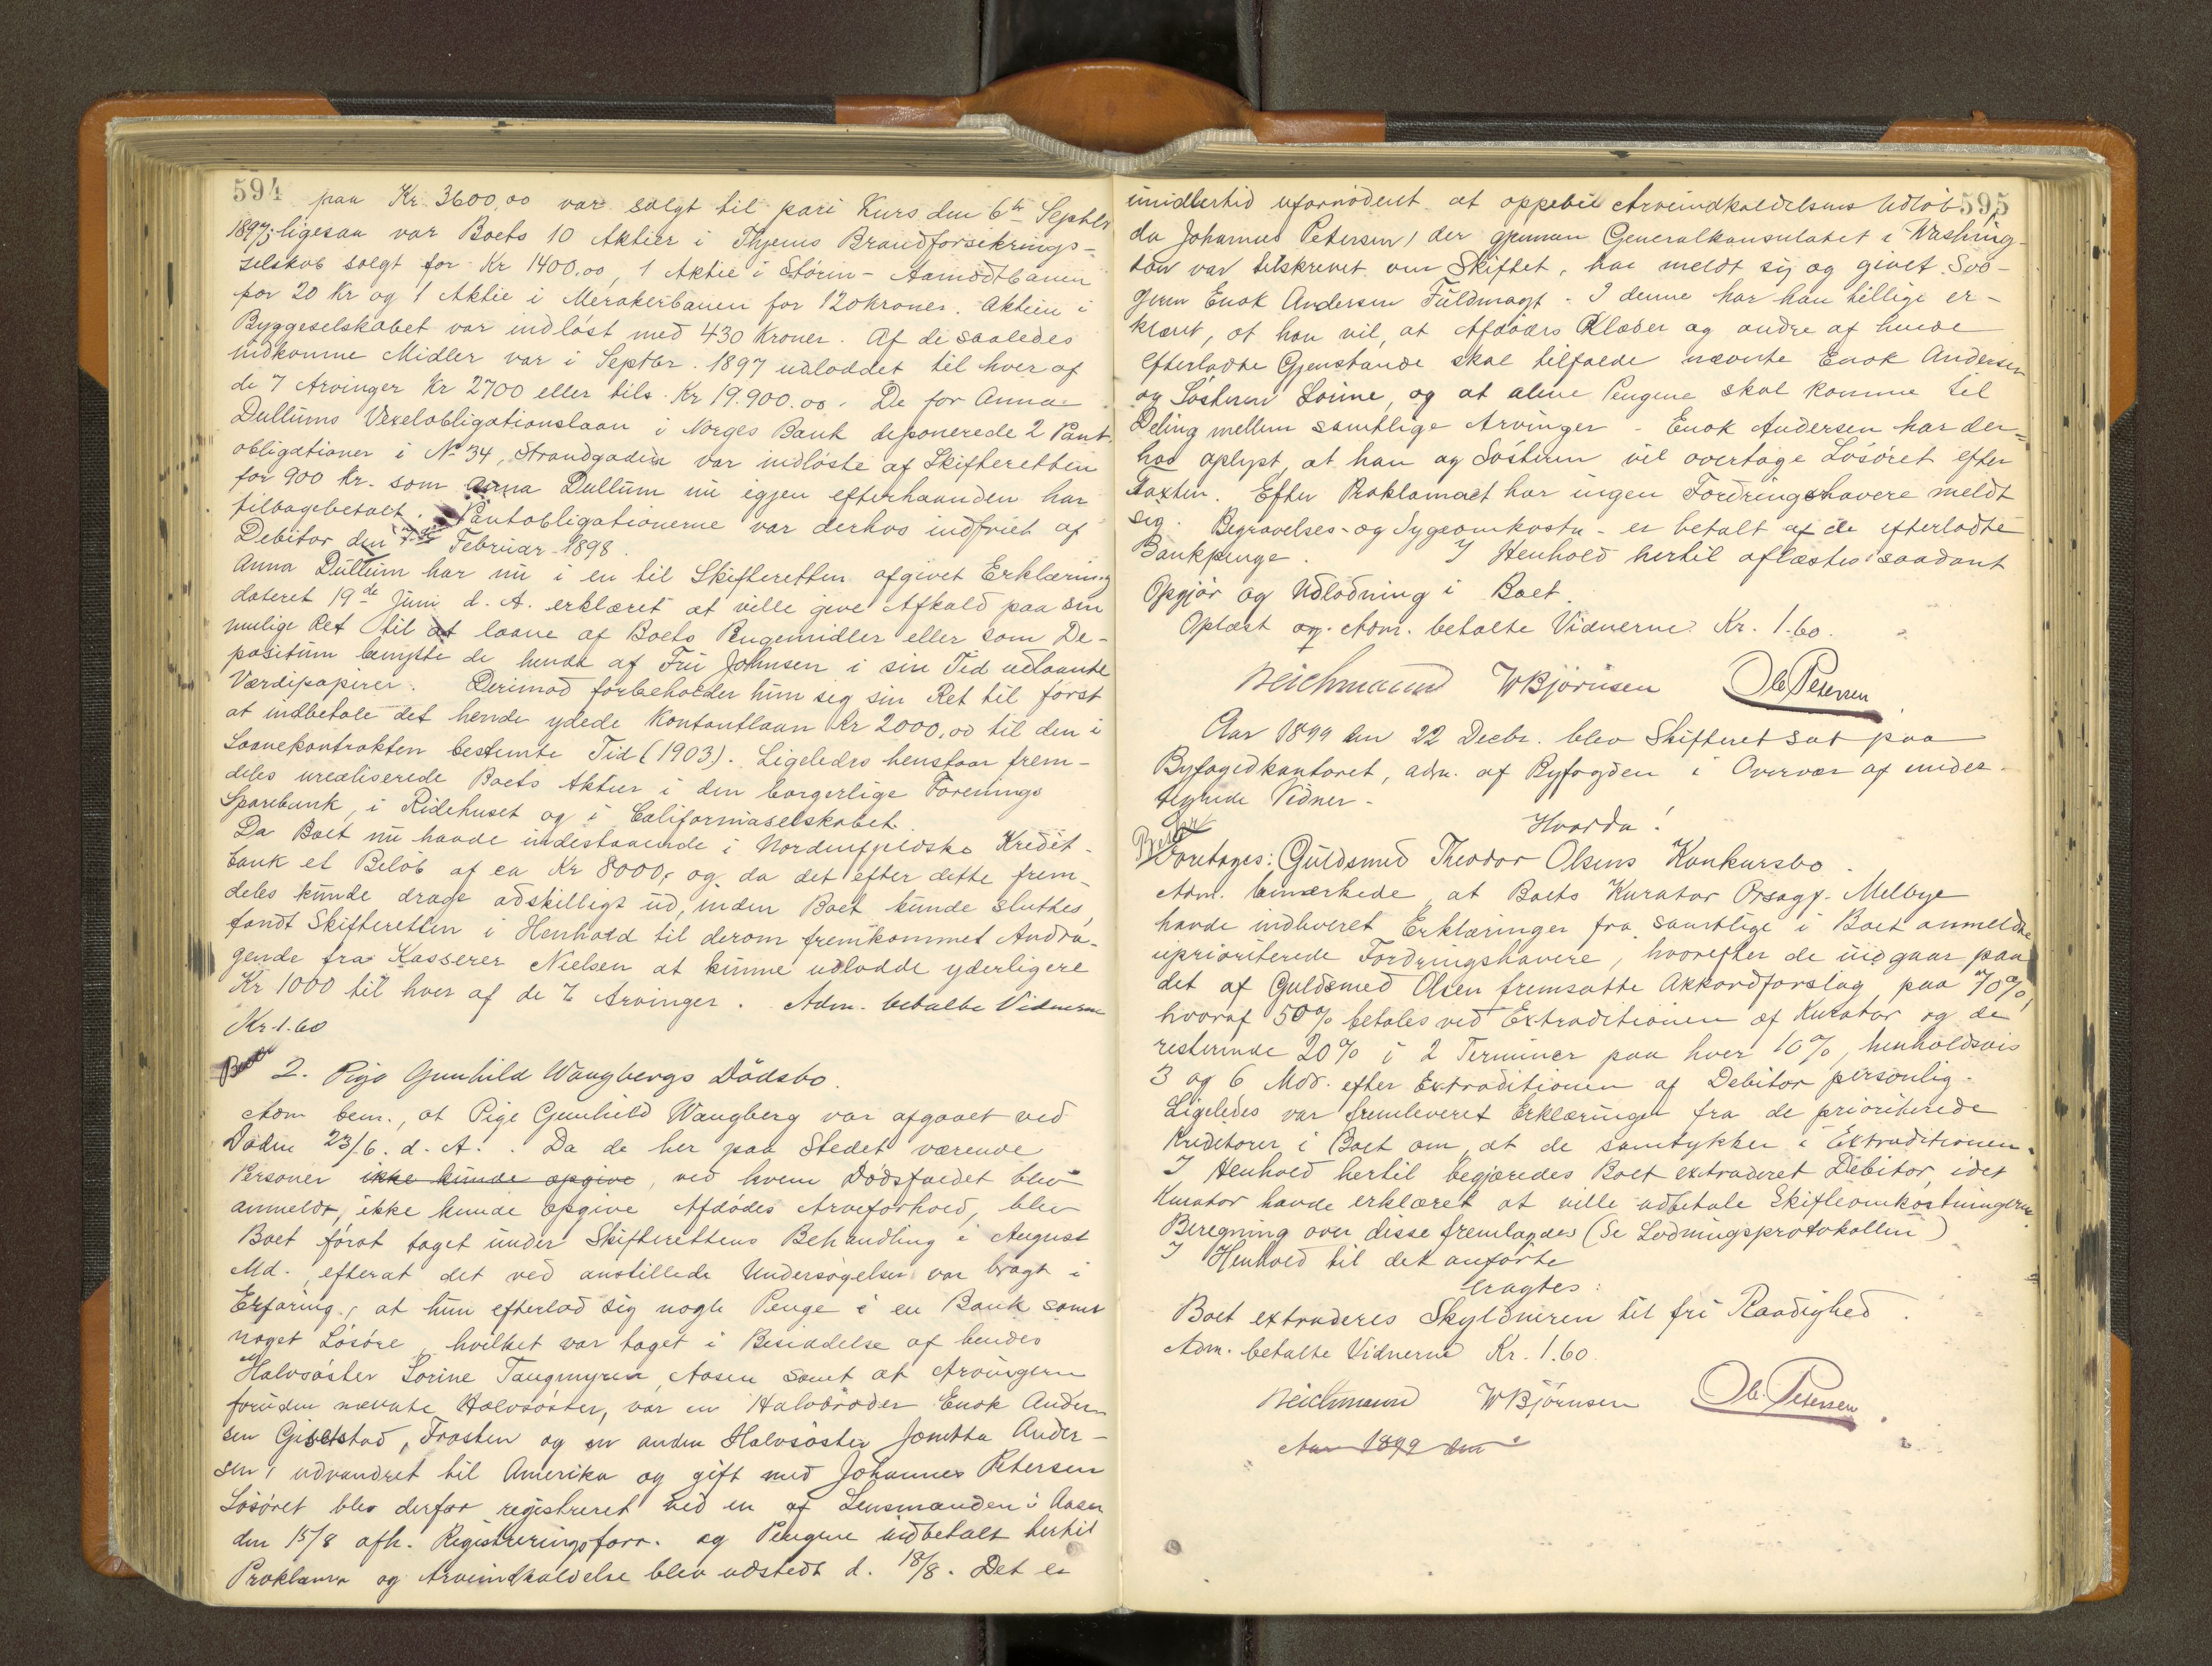 594
paa Kr. 3600,00 var solgt til pari Kurs den 6te Septbr
1897; ligesaa var Boets 10 Aktier i Thjems Brandforsikrings-
selskab solgt for Kr 1400.00, 1 Aktie i Støren-Aamodtbanen
for 20 Kr og 1 Aktie i Merakerbanen for 120 kroner. Aktien i
Byggeselskabet var indløst med 430 Kroner. Af de saaledes
indkomne Midler var i Septbr. 1897 udloddet til hver af
de 7 Arvinger Kr 2700 eller tils. Kr 19.900.00. De for Anna
Dullums Vexelobligationslaan i Norges Bank deponerede 2 Pant-
obligationer i No 34, Strandgaden var indløste af Skifteretten
for 900 Kr. som Anna Dullum nu igjen efterhaanden har
tilbagebetalt. Pantobligationerne var derhos indfriet af
Debitor den Februar 1898.
Anna Dullum har nu i en til Skifteretten afgivet Erklæring
dateret 19de Juni d. A. erklæret at ville give Afkald paa sin
mulige Ret til at laane af Boets Pengemidler eller som De-
positum benytte de hende af Fru Johnsen i sin Tid udlaante
Værdipapirer. Derimod forbeholder hun sig sin Ret til først
at indbetale det hende ydede Kontantlaan Kr 2000,00 til den i
Laanekontrakten bestemte Tid (1903). Ligeledes henstaar frem-
deles urealiserede Boets Aktier i den borgerlige Forenings
Sparebank, i Ridehuset og i Californiaselskabet.
Da Boet nu havde indestaaende i Nordenfjeldske Kredit-
bank et Beløb af ca Kr 8000,- og da det efter dette frem-
deles kunde drage adskilligt ud, inden Boet kunde sluttes,
fandt Skifteretten i Henhold til derom fremkommet Andra-
gende fra Kasserer Nielsen at kunne udlodde yderligere
Kr 1000 til hver af de 7 Arvinger. Adm. betalte Vidnerne
Kr. 1.60
2. Pige Gunhild Wangbergs Dødsbo.
Adm bem., at Pige Gunhild Wangberg var afgaaet ved
Døden 23/6. d. A. . Da de her paa Stedet værende
Personer ikke kunde opgive, ved hvem Dødsfaldet blev
anmeldt, ikke kunde opgive Afdødes Arveforhold, blev
Boet først taget under Skifterettens Behandling i August
Md., efterat det ved anstillede Undersøgelser var bragt i
Erfaring, at hun efterlod sig nogle Penge i en Bank samt
noget Løsøre, hvilket var taget i Besiddelse af hendes
Halvsøster Sorine Tangmyren, Aasen samt at Arvingerne
foruden nævnte Halvsøster, var en Halvbroder Enok Ander-
sen Gisstad, Frosten og en anden Halvsøster Ander-
sen, udvandret til Amerika og gift med Johannes Petersen
Løsøret blev derfor registreret ved en af Lensmanden i Aasen
den 15/8 afh. Registreringsforr. og Pengene indbetalt hertil
Proklama og Arveindkaldelse blev udstedt d. 18/8. Det er
595
imidlertid ufornødent at oppebie Arveindkaldelsens Udløb,
da Johannes Petersen, der gjennem Generalkonsulatet i Washing-
ton var tilskrevet om Skiftet, har meldt sig og givet Svo-
geren Enok Andersen Fuldmagt. I denne har han tillige er-
klæret, at han vil, at Afdødes Klæder og andre af hende
efterladte Gjenstande skal tilfalde nævnte Enok Andersen
og Søsteren Sorine, og at alene Pengene skal komme til
Deling mellem samtlige Arvinger. Enok Andersen har der-
hos oplyst, at han og Søsteren vil overtage Løsøret efter
Taxten. Efter Proklamaet har ingen Fordringshavere meldt
sig. Begravelses- og Sygeomkostn. er betalt af de efterladte
Bankpenge. I Henhold hertil aflæstes saadant
Opgjør og Udlodning i Boet.
Oplæst og Adm. betalte Vidnerne Kr. 1.60.
Reichmann WBjørnsen Ole Petersen
Aar 1899 den 22 Decbr. blev Skifteret sat paa
Byfogedkontoret, adm. af Byfogden i Overvær af under-
tegnede Vidner.
Hvorda!
Foretages: Guldsmed Theodor Olsens Konkursbo.
Adm. bemærkede, at Boets Kurator Orsagf. Melbye
havde indleveret Erklæringer fra samtlige i Boet anmeldte
uprioriterede Fordringshavere, hvorefter de indgaar paa
det af Guldsmed Olsen fremsatte Akkordforslag paa 70%,
hvoraf 50% betales ved Extraditionen af Kurator og de
resterende 20% i 2 Terminer paa hver 10%, henholdsvis
3 og 6 Mdr. efter Extraditionen af Debitor personlig.
Ligeledes var fremleveret Erklæringer fra de prioriterede
Kreditorer i Boet om, at de samtykker i Extraditionen.
I Henhold hertil begjæredes Boet extraderet Debitor, idet
Kurator havde erklæret at ville udbetale Skifteomkostningerne
Beregning over disse fremlagdes (Se Lodningsprotokollen)
I Henhold til det anførte
eragtes:
Boet extraderes Skyldneren til fri Raadighed.
Adm. betalte Vidnerne Kr. 1.60.
Reichmann WBjørnsen Ole Petersen
Aar 1899 den